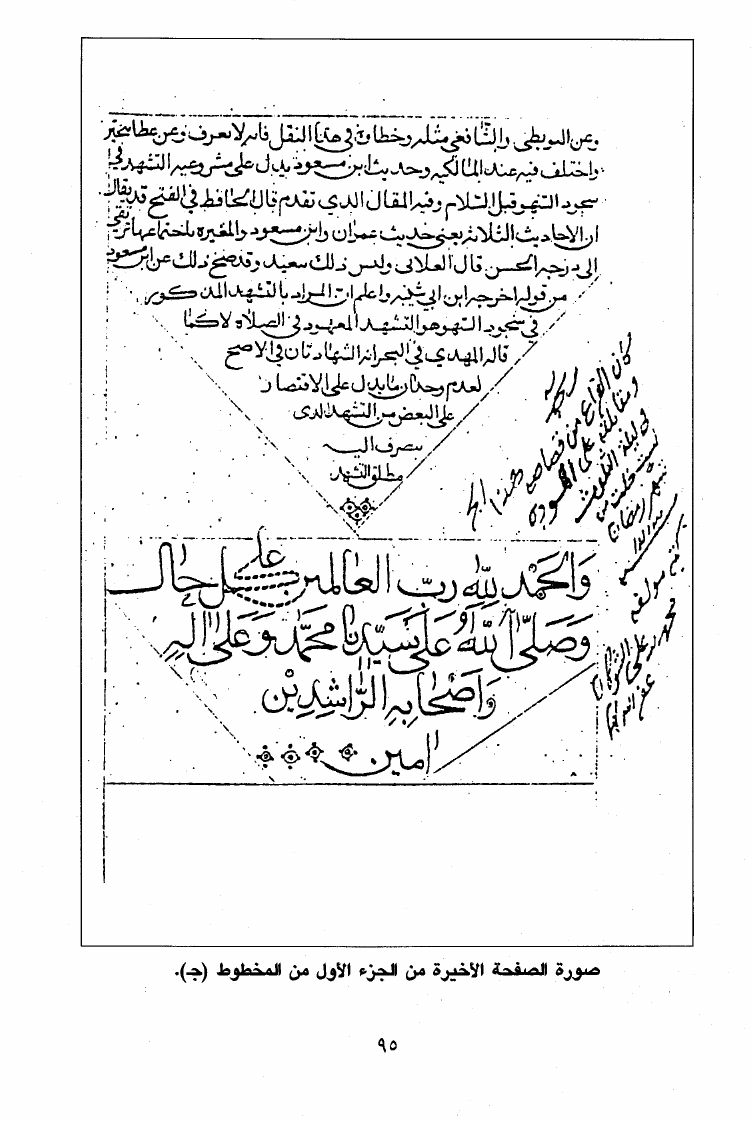 وعن البويطي والشافعي مثله وخطاوه في هذا النقل فانه لا يعرف وعن عطا يتخير
واختلف فيه عند المالكيه وحديث ابن مسعود يدل على مشروعيه التشهد في
سجود السهو قبل السلام وفيه المقال الذي تقدم قال الحافظ في الفتح قد يقال
ان الاحاديث الثلاثه يعني حديث عمران وابن مسعود والمغيره باجتماعها ترتقي
الى درجه الحسن قال العلائي وليس ذلك ببعيد وقد صح ذلك عن ابن مسعود
من قوله اخرجه ابن ابي شيبه واعلم ان المراد بالتشهد المذكور
في سجود السهو هو التشهد المعهود في الصلاه لا كما
قاله المهدي في البحر انه الشهادتان في الاصح
لعدم وجدان ما يدل على الاقتصار
على البعض من التشهد الذي
ينصرف اليه
مطلق التشهد
والحمد لله رب العالمين على كل حال
وصلى الله على سيدنا محمد وعلى اله
واصحابه الراشدين
امين
كان الفراغ من قصاصه هذا
ومقابلته على
في ليلة الثلوث
خلت من
شهر رمضان
مولفه
محمد بن علي الشوكاني
غفر الله لهما
صورة الصفحة الأخيرة من الجزء الأول من المخطوط (جـ).
٩٥